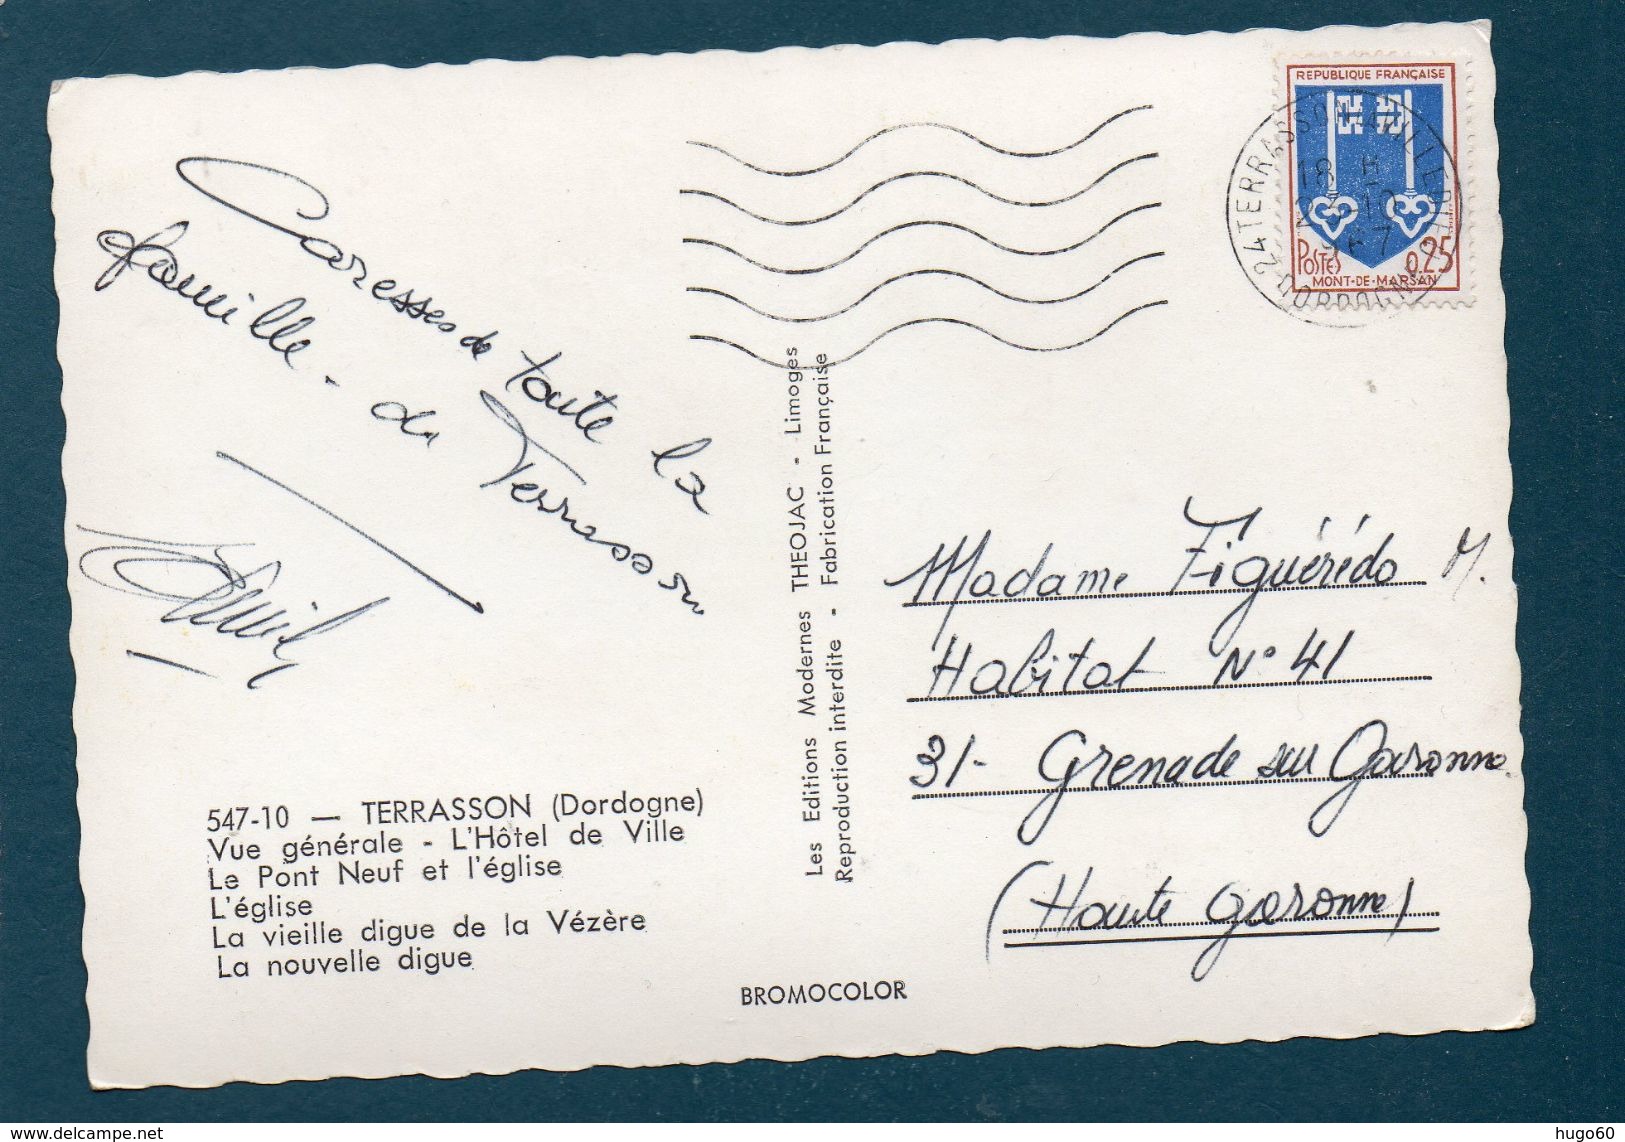 REPUBLIQUE FRANÇAISE
POSTES 0,25
MONT-DE-MARSAN
18 H
23-10
1967
24 TERRASSON-LA-VILLEDIEU
DORDOGNE
Caresses de toute la
famille - de Terrasson
Les Editions Modernes THEOJAC - Limoges
Reproduction interdite - Fabrication Française
Madame Figuérédo M.
Habitat N° 41
31- Grenade sur Garonne
(Haute Garonne)
547-10 — TERRASSON (Dordogne)
Vue générale - L'Hôtel de Ville
Le Pont Neuf et l'église
L'église
La vieille digue de la Vézère
La nouvelle digue
BROMOCOLOR
www.delcampe.net
hugo60